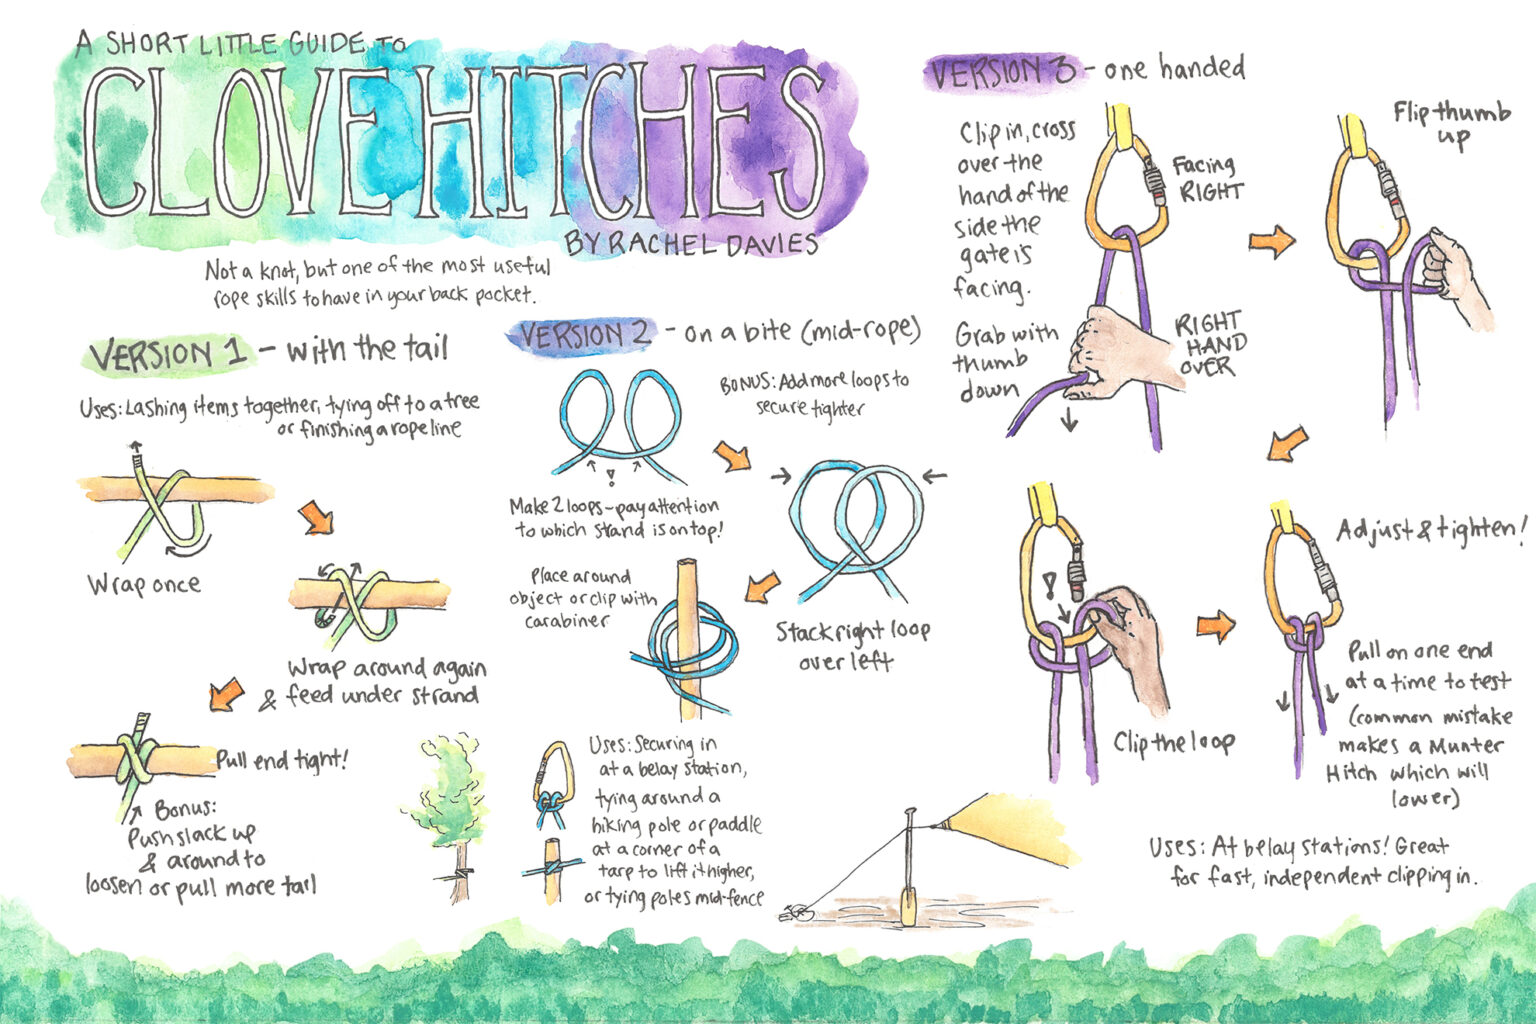 A SHORT LITTLE GUIDE TO
CLOVE HITCHES
BY RACHEL DAVIES
Not a knot, but one of the most useful
rope skills to have in your back pocket.
VERSION 1 - with the tail
Uses: Lashing items together, tying off to a tree
or finishing a rope line
Wrap once
Wrap around again
& feed under strand
Pull end tight!
Bonus:
Push slack up
& around to
loosen or pull more tail
VERSION 2 - on a bite (mid-rope)
BONUS: Add more loops to
secure tighter
!
Make 2 loops - pay attention
to which strand is on top!
Stack right loop
over left
Place around
object or clip with
carabiner
Uses: Securing in
at a belay station,
tying around a
hiking pole or paddle
at a corner of a
tarp to lift it higher,
or tying poles mid-fence
VERSION 3 - one handed
Clip in, cross
over the
hand of the
side the
gate is
facing.
Facing
RIGHT
Grab with
thumb
down
RIGHT
HAND
OVER
Flip thumb
up
!
Clip the loop
Adjust & tighten!
Pull on one end
at a time to test
(common mistake
makes a Munter
Hitch which will
lower)
Uses: At belay stations! Great
for fast, independent clipping in.